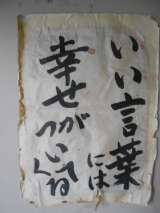 いい言葉
には
幸せが
ついてる